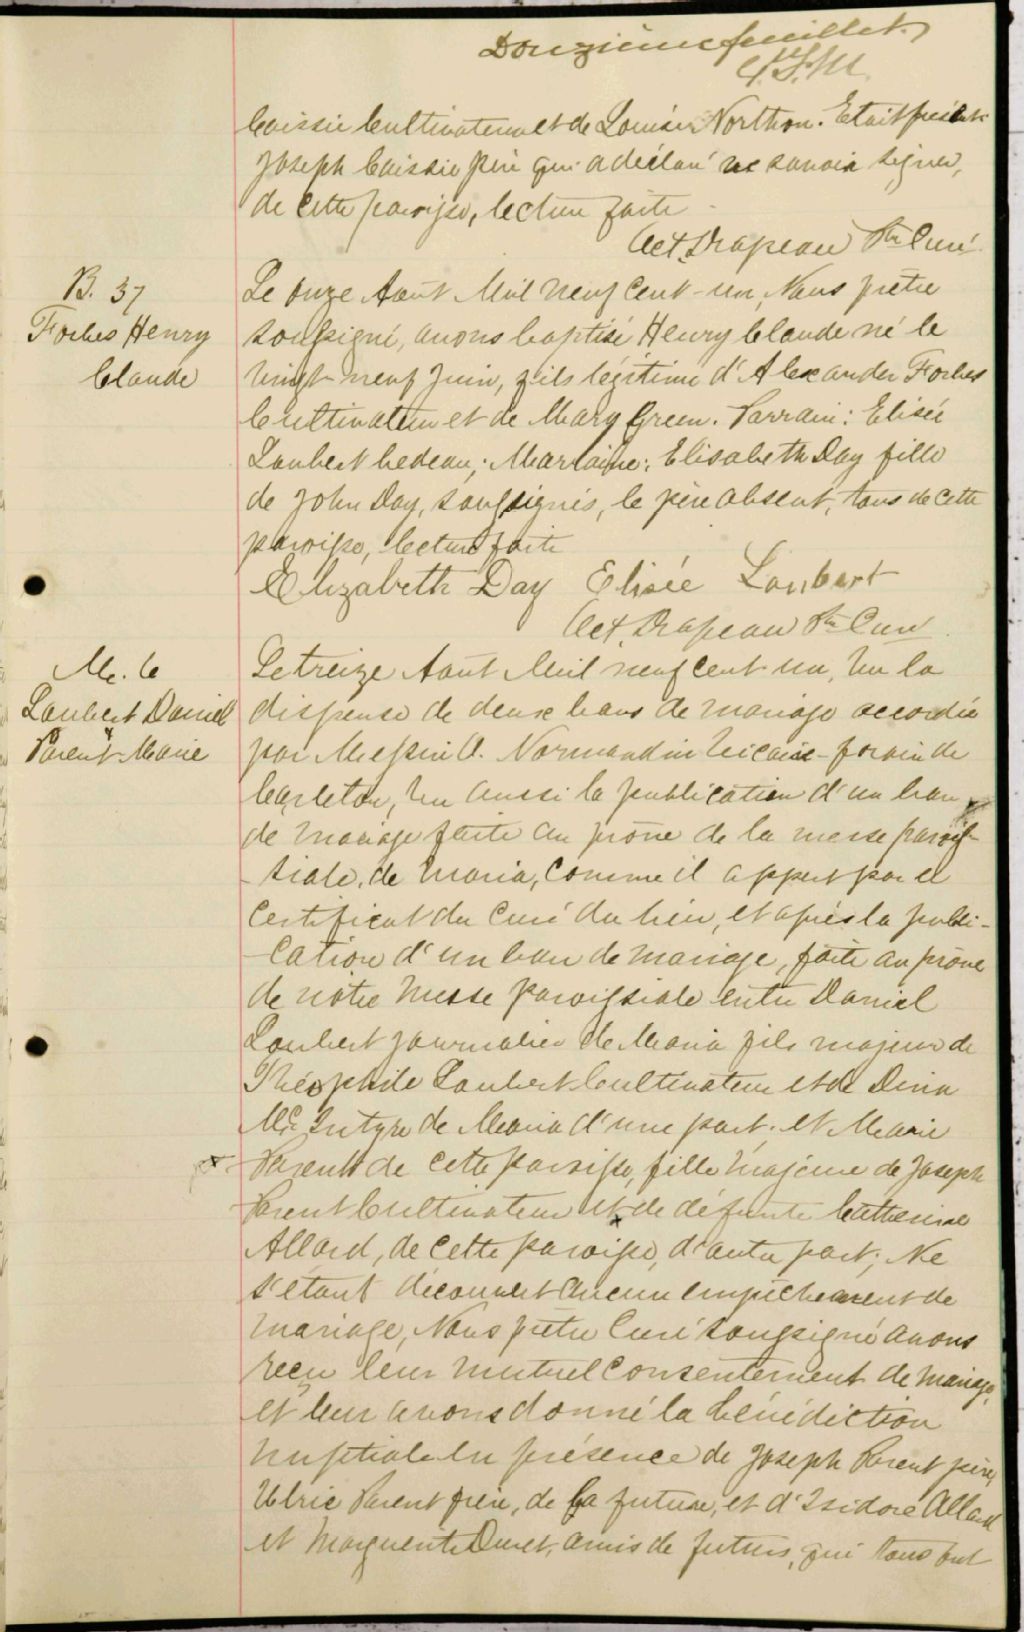 Douzième feuillet
Caissie Cultivateur et de Louisa Northon. Etait présent
Joseph Caissie père qui a déclaré ne savoir signer,
de cette paroisse, lecture faite
Drapeau Ptre Curé
B. 37
Forbes Henry
Claude
Le onze Août Mil neuf cent-un, Nous prêtre
soussigné, avons baptisé Henry Claude né le
vingt-neuf Juin, fils légitime d'Alexander Forbes
Cultivateur et de Mary Green. Parrain: Elisée
Loubert bedeau; Marraine: Elisabeth Day fille
de John Day, soussignés, le père absent, tous de cette
paroisse, lecture faite
Elizabeth Day Elisée Loubert
Drapeau Ptre Curé
M. 6
Loubert Daniel
& Parent Marie
Le treize Août Mil neuf cent un, Vu la
dispense de deux bans de mariage accordée
par Messire Normandin Vicaire-forain de
Carleton, Vu aussi la publication d'un ban
de mariage faite au prône de la messe parois-
siale, de Maria, comme il appert par le
certificat du Curé du lieu, et après la publi-
cation d'un ban de mariage, faite au prône
de notre Messe paroissiale entre Daniel
Loubert journalier de Maria fils majeur de
Théophile Loubert Cultivateur et de Dina
McIntyre de Maria d'une part; et Marie
Parent de cette paroisse, fille majeure de Joseph
Parent Cultivateur et de défunte Catherine
Allard, de cette paroisse, d'autre part; Ne
s'étant découvert aucun empêchement de
mariage, Nous prêtre Curé soussigné avons
reçu leur mutuel consentement de mariage,
et leur avons donné la bénédiction
nuptiale en présence de Joseph Parent père,
Ulric Parent frère, de la future, et d'Isidore Allard
et Marguerite Duret, amis de futurs, qui tous ont